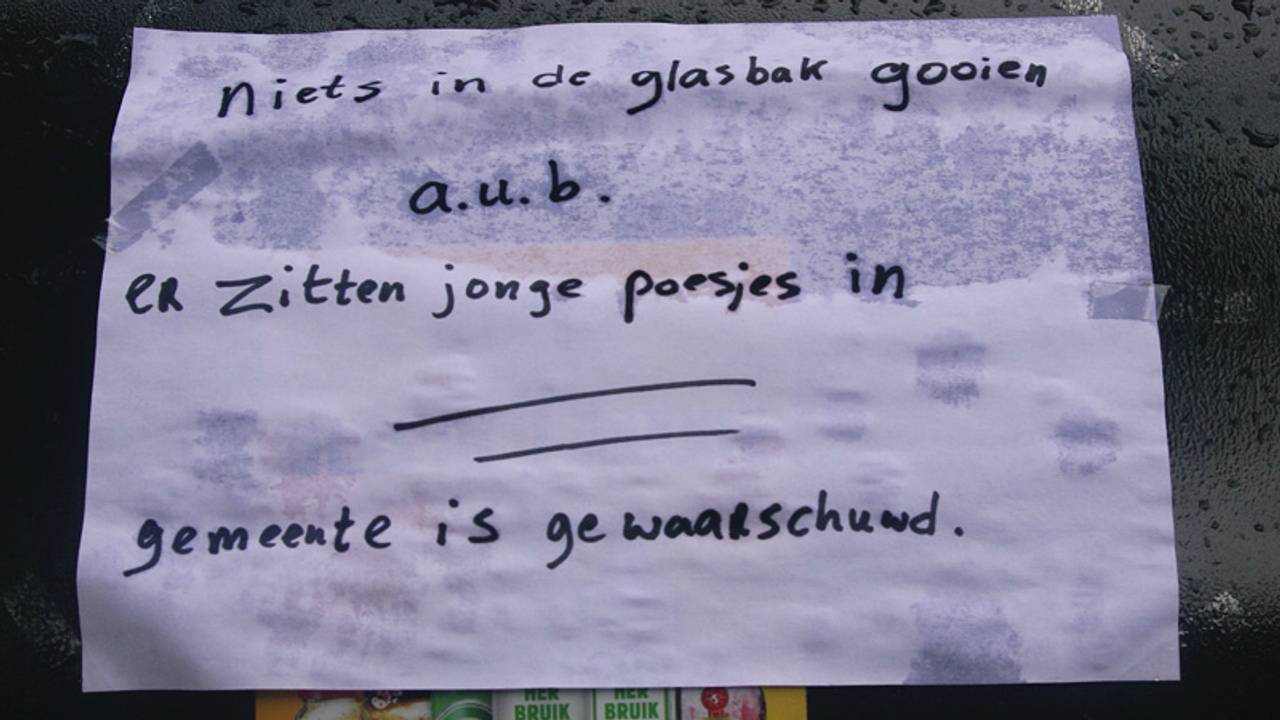 niets in de glasbak gooien
a.u.b.
er zitten jonge poesjes in
gemeente is gewaarschuwd.
HER HER
BRUIK BRUIK